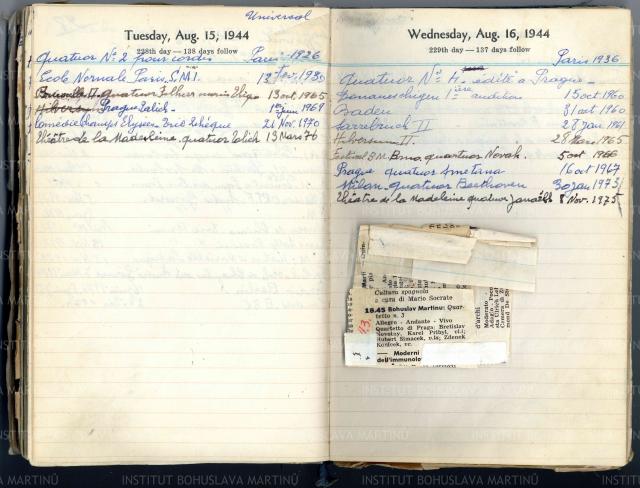 Universal
Tuesday, Aug. 15, 1944
228th day — 138 days follow
Quatuor No 2 pour cordes Paris 1926
Ecole Normale Paris S.M.I. 1930
13 oct 1965
Prague Talich 1er juin 1969
Comédie Champs Elysées Trio tchèque 21 Nov. 1970
Théâtre de la Madeleine, quatuor Talich 13 Mars 76
Wednesday, Aug. 16, 1944
229th day — 137 days follow
Paris 1936
Quatuor No 4 édité à Prague
Donaueschingen 1ière audition 15 oct 1960
Baden 31 oct 1960
Sarrebruck II 27 Jan 1961
Hilversum II. 28 Mars 1965
Festival B.M. Brno, quartuor Novak. 5 oct 1966
Prague quatuor Smetana 16 oct 1967
Milan. quatuor Beethoven 30 jan 1973
Théâtre de la Madeleine quatuor Janáček 8 Nov. 1975
Cultura spagnola
a cura di Mario Socrate
18.45 Bohuslav Martinu: Quar-
tetto n. 3
Allegro - Andante - Vivo
Quartetto di Praga: Bretislav
Novotny, Karel Pribyl, vl.i;
Hubert Simacek, v.la; Zdenek
Konicek, vc.
— Moderni
dell'immunolo
INSTITUT BOHUSLAVA MARTINŮ